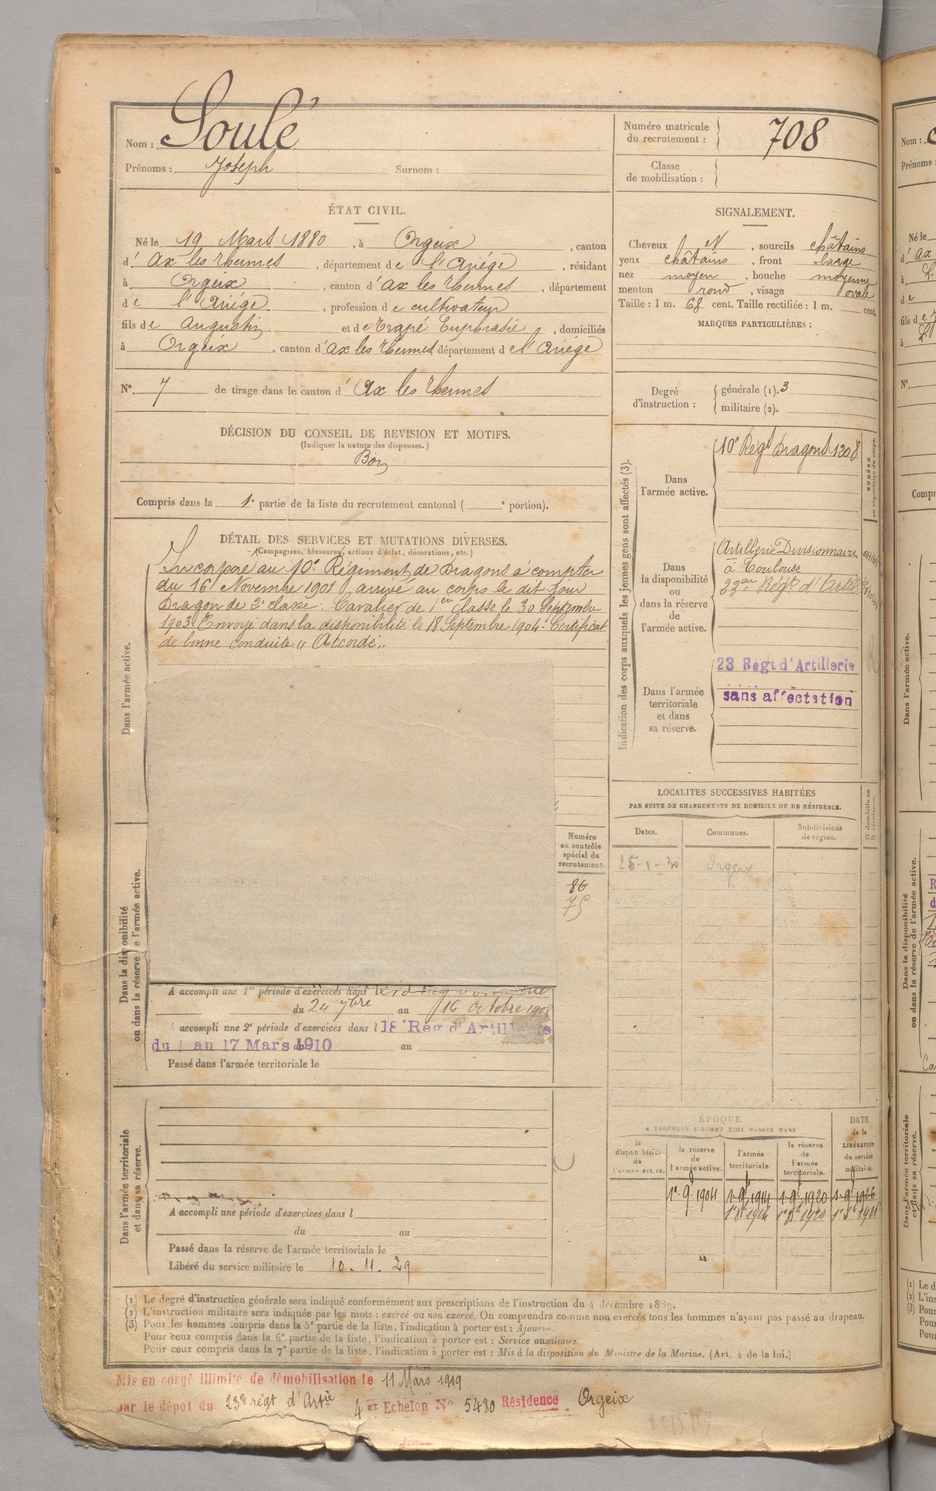 Nom : Soulé
Prénoms : Joseph Surnom :
Numéro matricule du recrutement : 708
Classe de mobilisation :
ÉTAT CIVIL.
Né le 19 Mars 1880, à Orgeix, canton
d' Ax les Thermes, département de l'Ariège, résidant
à Orgeix, canton d' Ax les Thermes, département
de l'Ariège, profession de cultivateur
fils de Augustin et de Trapé Euphrasie, domiciliés
à Orgeix, canton d' Ax les Thermes département de l'Ariège
N° 7 de tirage dans le canton d' Ax les Thermes
SIGNALEMENT.
Cheveux N, sourcils châtains
yeux châtains, front large
nez moyen, bouche moyenne
menton rond, visage ovale
Taille : 1 m. 68 cent. Taille rectifiée : 1 m. cent.
MARQUES PARTICULIÈRES :
Degré d'instruction : générale (1). 3
militaire (2).
DÉCISION DU CONSEIL DE REVISION ET MOTIFS.
(Indiquer la nature des dispenses.)
Bon
Compris dans la 1e partie de la liste du recrutement cantonal ( e portion).
DÉTAIL DES SERVICES ET MUTATIONS DIVERSES.
(Campagnes, blessures, actions d'éclat, décorations, etc.)
Dans l'armée active.
Incorporé au 10e Régiment de Dragons à compter
du 16 Novembre 1901, arrivé au corps le dit jour
Dragon de 2e classe. Cavalier de 1ère classe le 30 Septembre
1903. Envoyé dans la disponibilité le 18 Septembre 1904. Certificat
de bonne conduite " Accordé "
Indication des corps auxquels les jeunes gens sont affectés (3).
Dans l'armée active. 10e Régt Dragons 1308
Dans la disponibilité ou dans la réserve de l'armée active.
Artillerie Divisionnaire
à Toulouse
23me Régt d'Artie
Dans l'armée territoriale et dans sa réserve.
23 Régt d'Artillerie
sans affectation
LOCALITES SUCCESSIVES HABITÉES
PAR SUITE DE CHANGEMENTS DE DOMICILE OU DE RÉSIDENCE.
Dates. Communes. Subdivisions de région.
25-1-30 Orgeix
Numéro au contrôle spécial du recrutement.
86
75
Dans la disponibilité ou dans la réserve de l'armée active.
A accompli une 1re période d'exercices dans
du 24 7bre au 16 Octobre
A accompli une 2e période d'exercices dans l 18e Rég d'Artillerie
du 1 au 17 Mars 1910 au
Passé dans l'armée territoriale le
Dans l'armée territoriale et dans sa réserve.
A accompli une période d'exercices dans l
du au
Passé dans la réserve de l'armée territoriale le
Libéré du service militaire le 10.11.29
ÉPOQUE
A LAQUELLE L'HOMME DOIT PASSER DANS
la disponibilité de l'armée active.
la réserve de l'armée active.
l'armée territoriale.
la réserve de l'armée territoriale.
DATE de la LIBÉRATION du service militaire.
1r 9e 1904 1r 9e 1914 1r 9e 1920 1r 9e 1926
(1) Le degré d'instruction générale sera indiqué conformément aux prescriptions de l'instruction du 4 décembre 1889.
(2) L'instruction militaire sera indiquée par les mots : exercé ou non exercé. On comprendra comme non exercés tous les hommes n'ayant pas passé au drapeau.
(3) Pour les hommes compris dans la 5e partie de la liste, l'indication à porter est : Ajourné.
Pour ceux compris dans la 6e partie de la liste, l'indication à porter est : Service auxiliaire.
Pour ceux compris dans la 7e partie de la liste, l'indication à porter est : Mis à la disposition du Ministre de la Marine. (Art. 4 de la loi.)
Mis en congé illimité de démobilisation le 11 Mars 1919
par le dépot du 23e régt d'Artie 4 er Echelon N° 5480 Résidence Orgeix